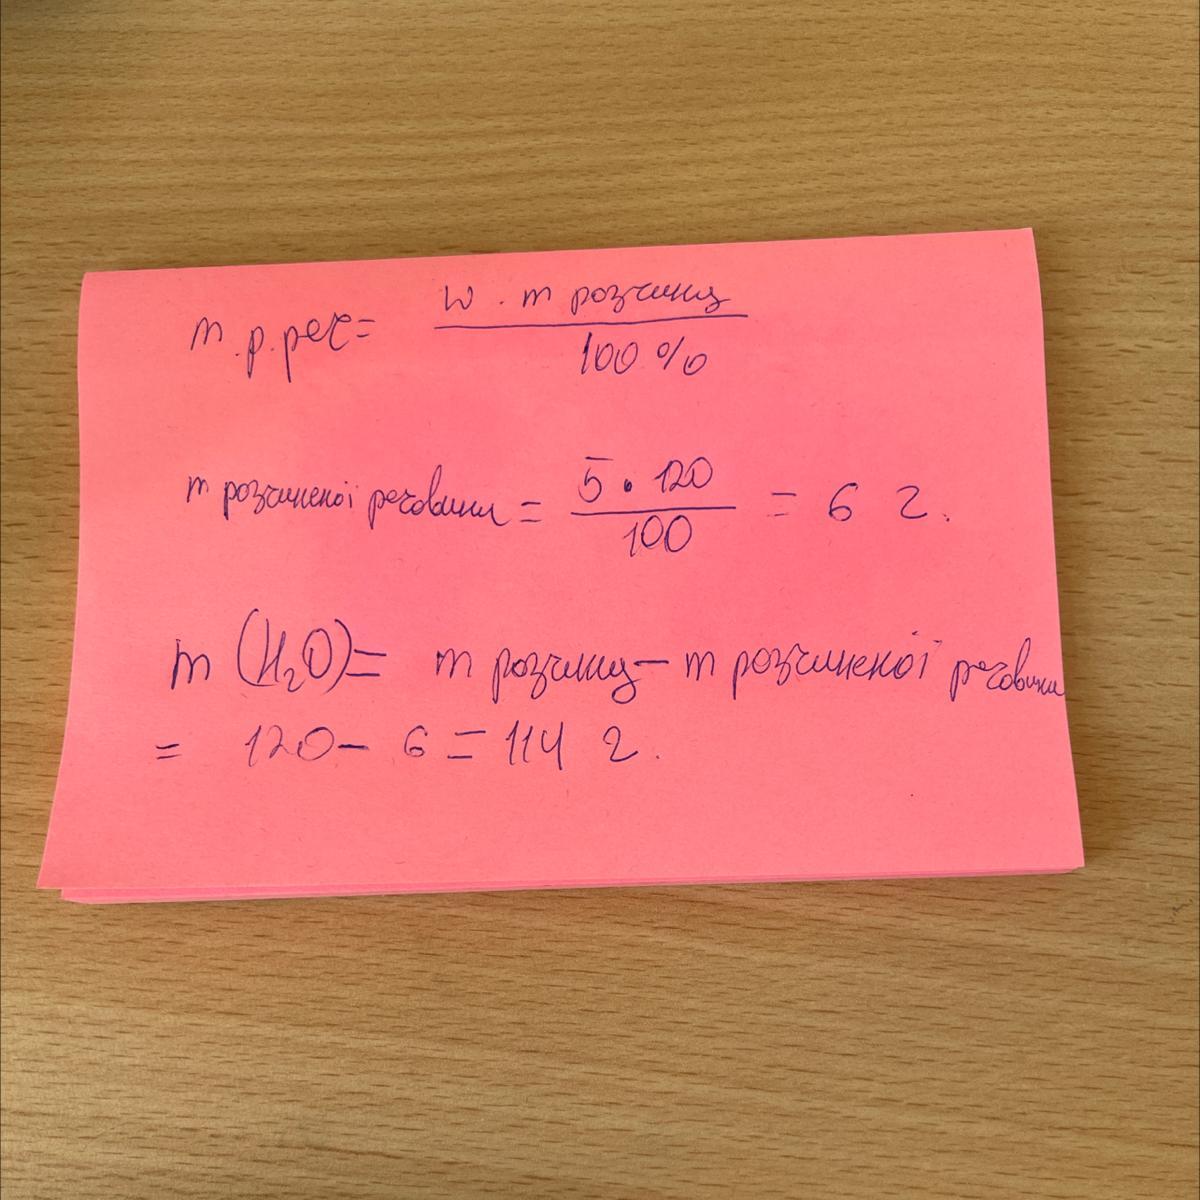 m.р.реч = w · m розчину / 100 %
m розчиненої речовини = 5 · 120 / 100 = 6 г.
m (H₂O) = m розчину – m розчиненої речовини
= 120 – 6 = 114 г.